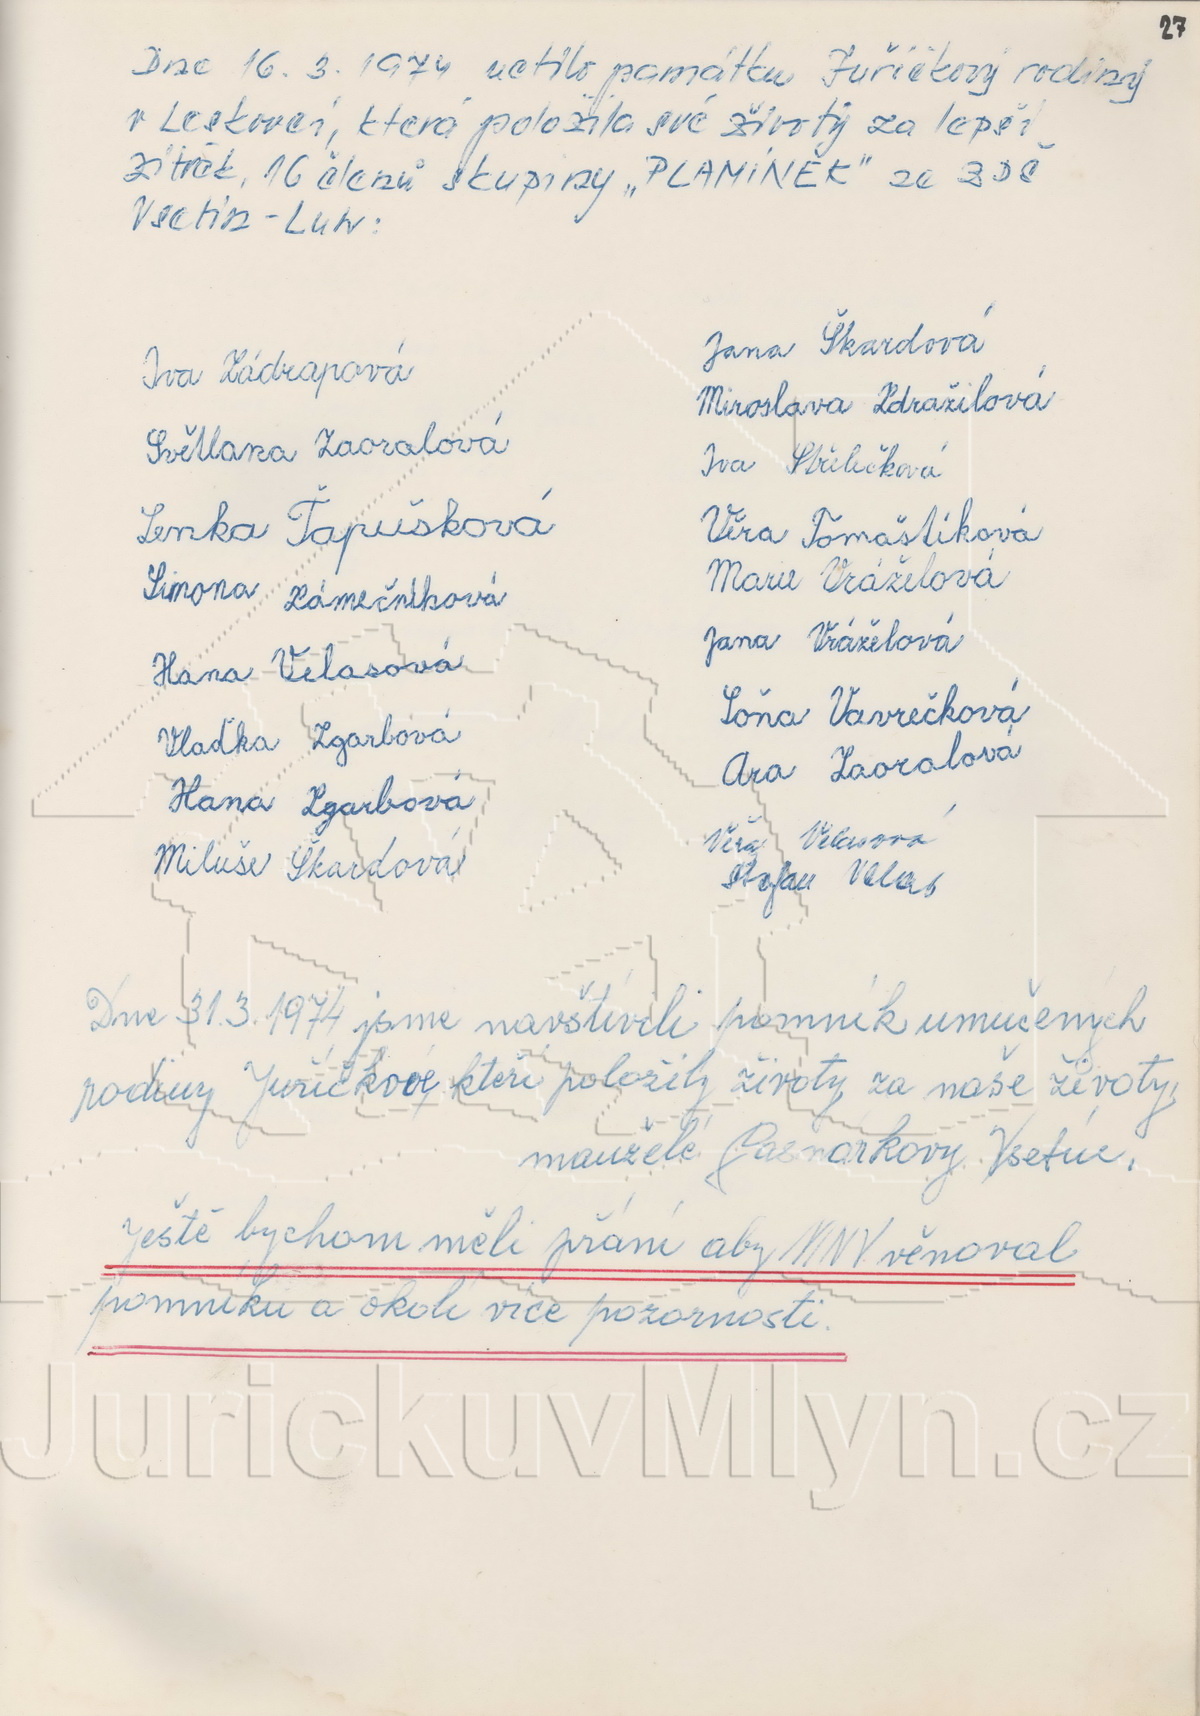 27
Dne 16. 3. 1974 uctilo památku Juříčkovy rodiny
v Leskovci, která položila své životy za lepší
zítřek, 16 členů skupiny „PLAMÍNEK" ze ZDŠ
Vsetín - Luh:
Iva Zádrapová
Světlana Zaoralová
Lenka Ťapušková
Simona Zámečníková
Hana Velasová
Vlaďka Zgarbová
Hana Zgarbová
Miluše Škardová
Jana Škardová
Miroslava Zdražilová
Iva Střelečková
Věra Tomaštíková
Marie Vráželová
Jana Vráželová
Soňa Vavrečková
Zaoralová
Věra Velasová
Štefan Velas
Dne 31.3.1974 jsme navštívili pomník umučených
rodiny Juříčkové kteři položily životy za naše životy,
manželé Vsetín.
Ještě bychom měli přání aby MNV věnoval
pomníku a okolí více pozornosti.
JurickuvMlyn.cz